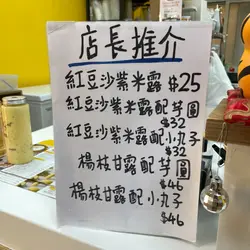 店長推介
紅豆沙紫米露 $25
紅豆沙紫米露配芋圓
$32
紅豆沙紫米露配小丸子
$32
楊枝甘露配芋圓
$46
楊枝甘露配小丸子
$46